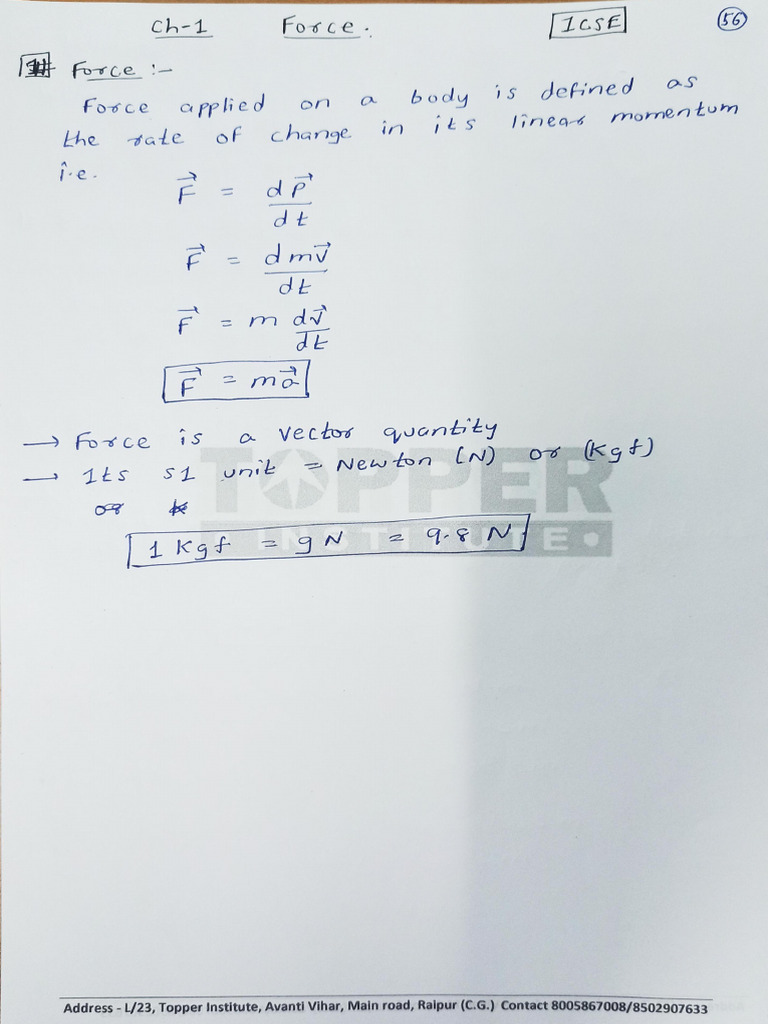 Ch-1 Force. ICSE 56
# Force :-
Force applied on a body is defined as
the rate of change in its linear momentum
i.e.
F⃗ = dP⃗/dt
F⃗ = dmv⃗/dt
F⃗ = m dv⃗/dt
F⃗ = ma⃗
→ Force is a vector quantity
→ Its SI unit = Newton (N) or (Kgf)
or
1 Kgf = gN = 9.8 N
TOPPER
INSTITUTE
Address - L/23, Topper Institute, Avanti Vihar, Main road, Raipur (C.G.) Contact 8005867008/8502907633